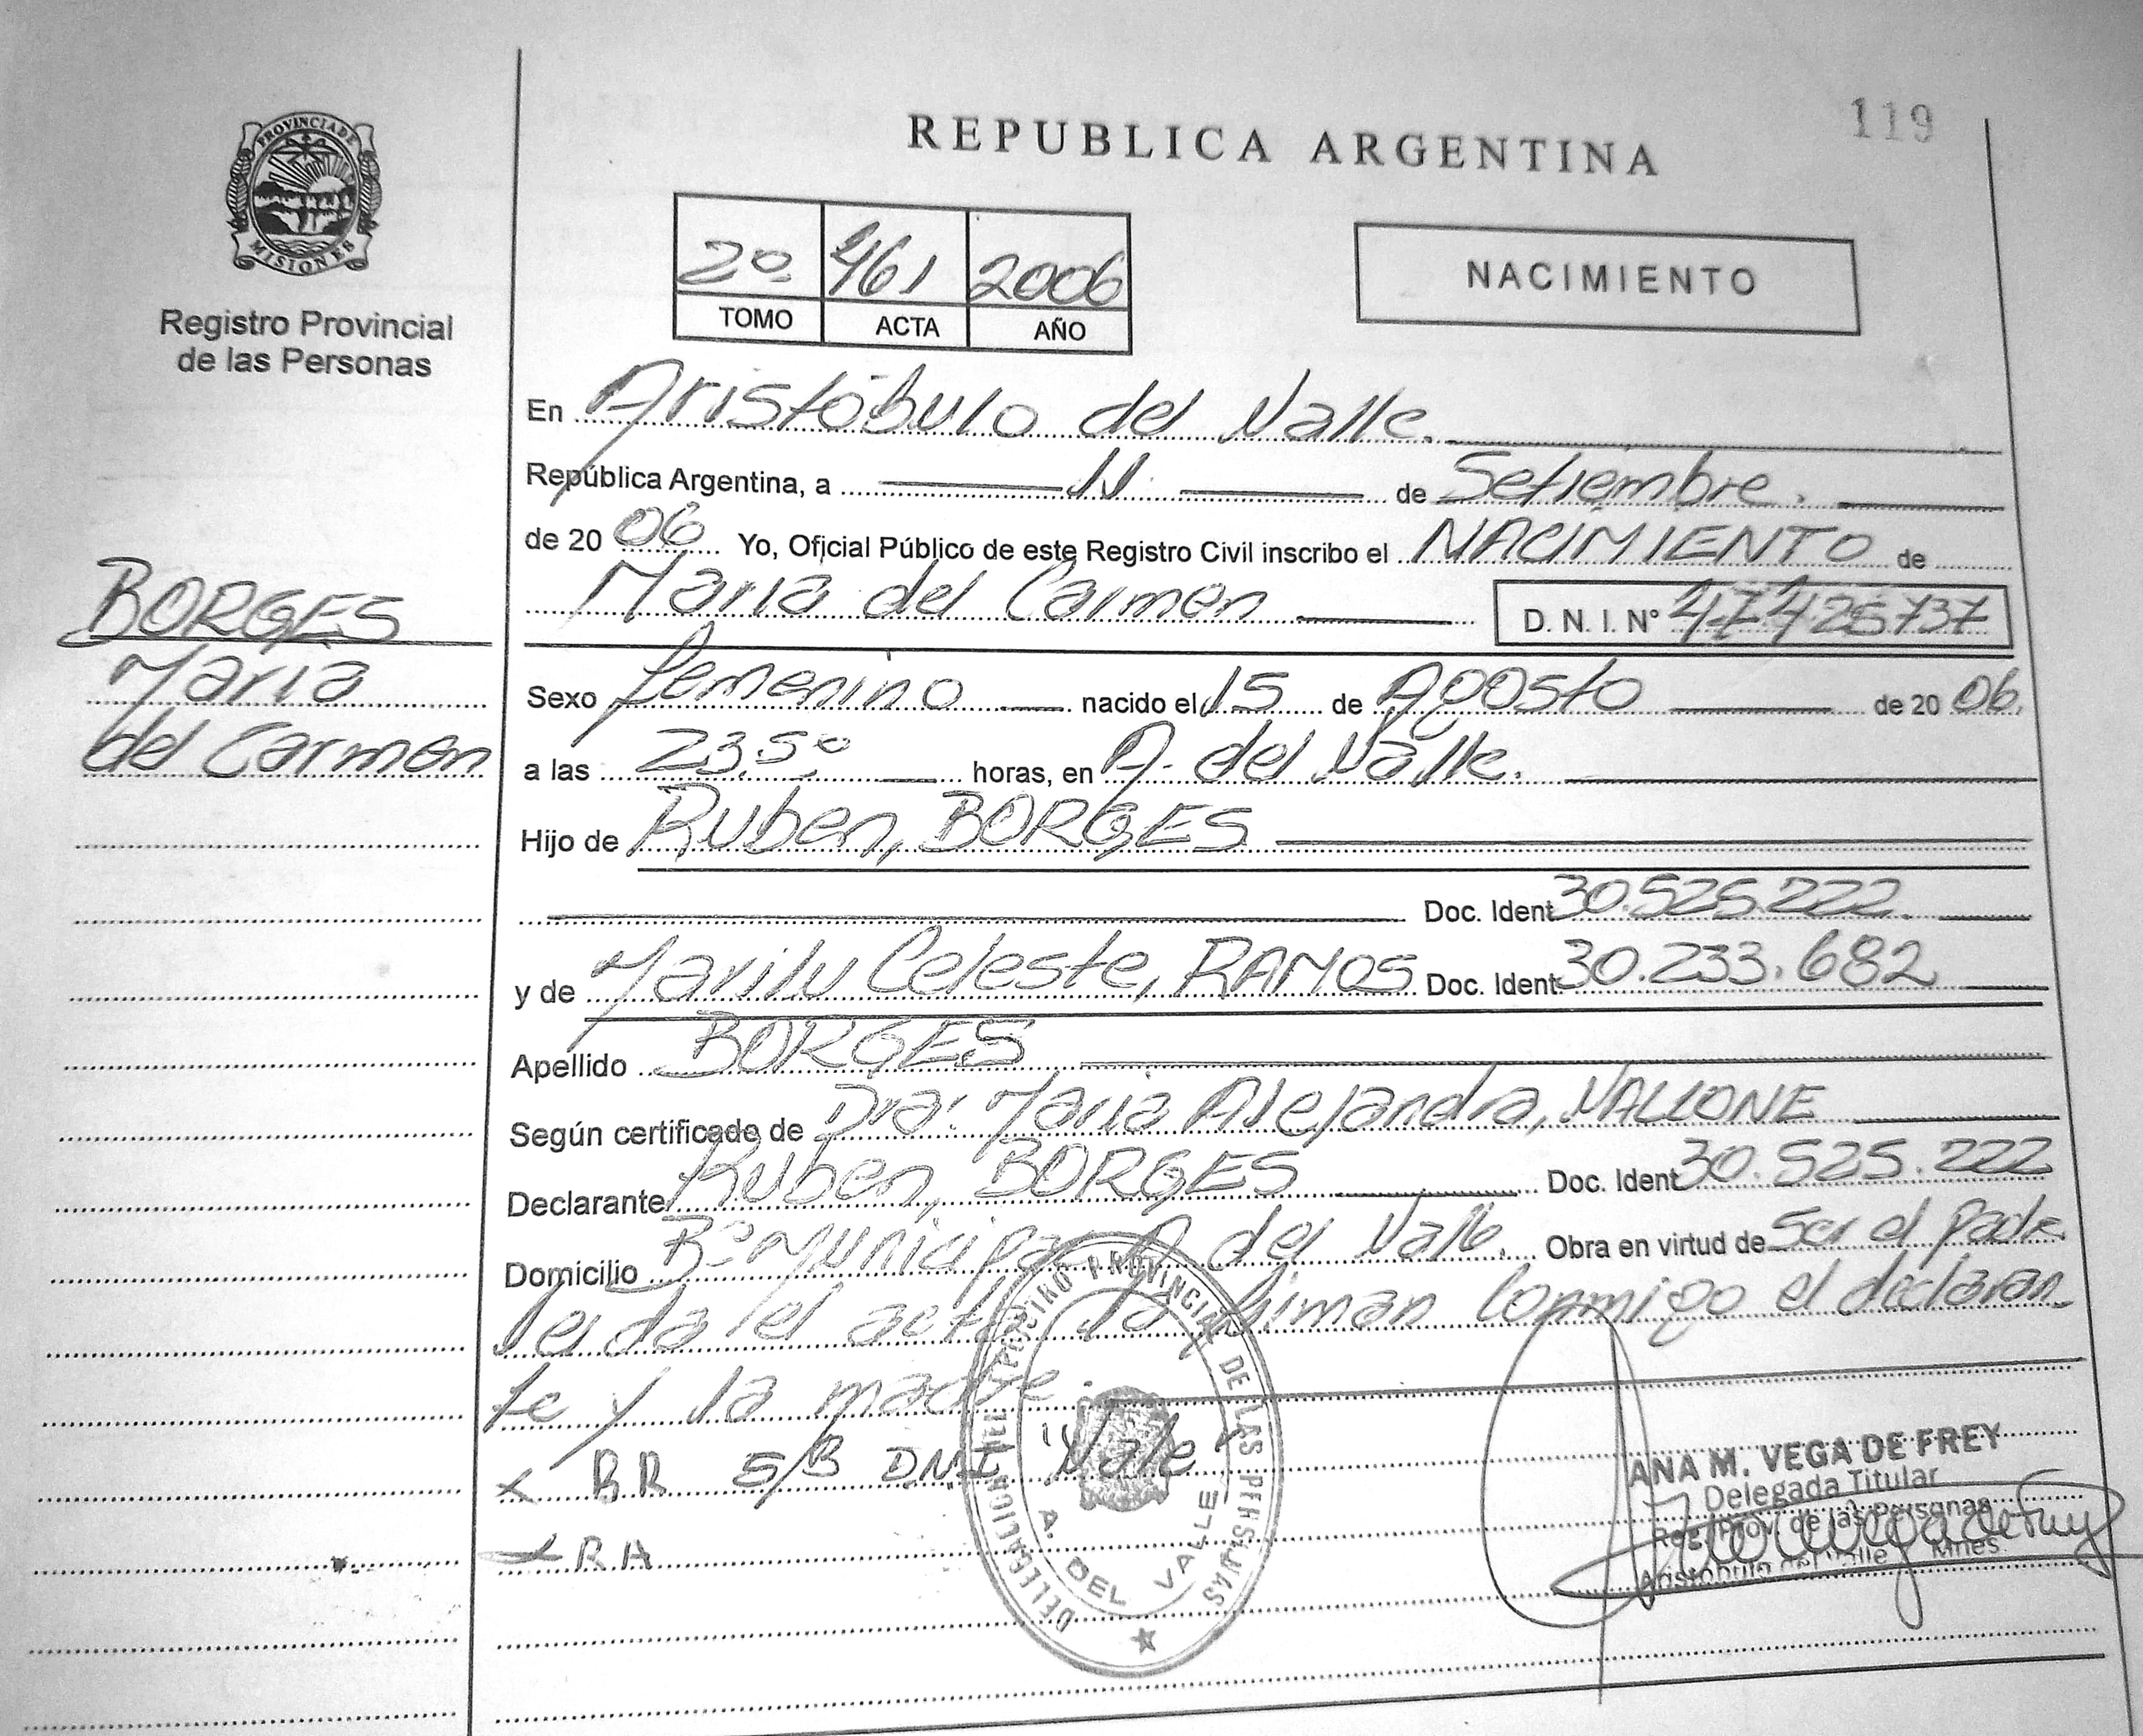 119
REPUBLICA ARGENTINA
PROVINCIA DE
MISIONES
Registro Provincial
de las Personas
2º 461 2006
TOMO ACTA AÑO
NACIMIENTO
En Aristóbulo del Valle.
República Argentina, a 11 de Setiembre.
de 20 06 Yo, Oficial Público de este Registro Civil inscribo el NACIMIENTO de
María del Carmen D. N. I. Nº
BORGES
María
del Carmen
Sexo femenino nacido el 15 de Agosto de 20 06.
a las 23,5º horas, en A. del Valle.
Hijo de Ruben, BORGES
Doc. Ident. 30.525.222.
y de Marilu Celeste, RAMOS Doc. Ident. 30.233.682
Apellido BORGES
Según certificado de Dra. Maria Alejandra, VALLONE
Declarante Ruben, BORGES Doc. Ident. 30.525.222
Domicilio Bº Municipal A del Valle. Obra en virtud de Ser el padre.
Leida el acta la firman conmigo el declaran_
te y la madre.
x BR S/B DNI "Vale"
x RA
DELEGACION DEL REGISTRO PROVINCIAL DE LAS PERSONAS
A. DEL VALLE
ANA M. VEGA DE FREY
Delegada Titular
Reg. Prov. de las Personas
Aristóbulo del Valle Mnes.